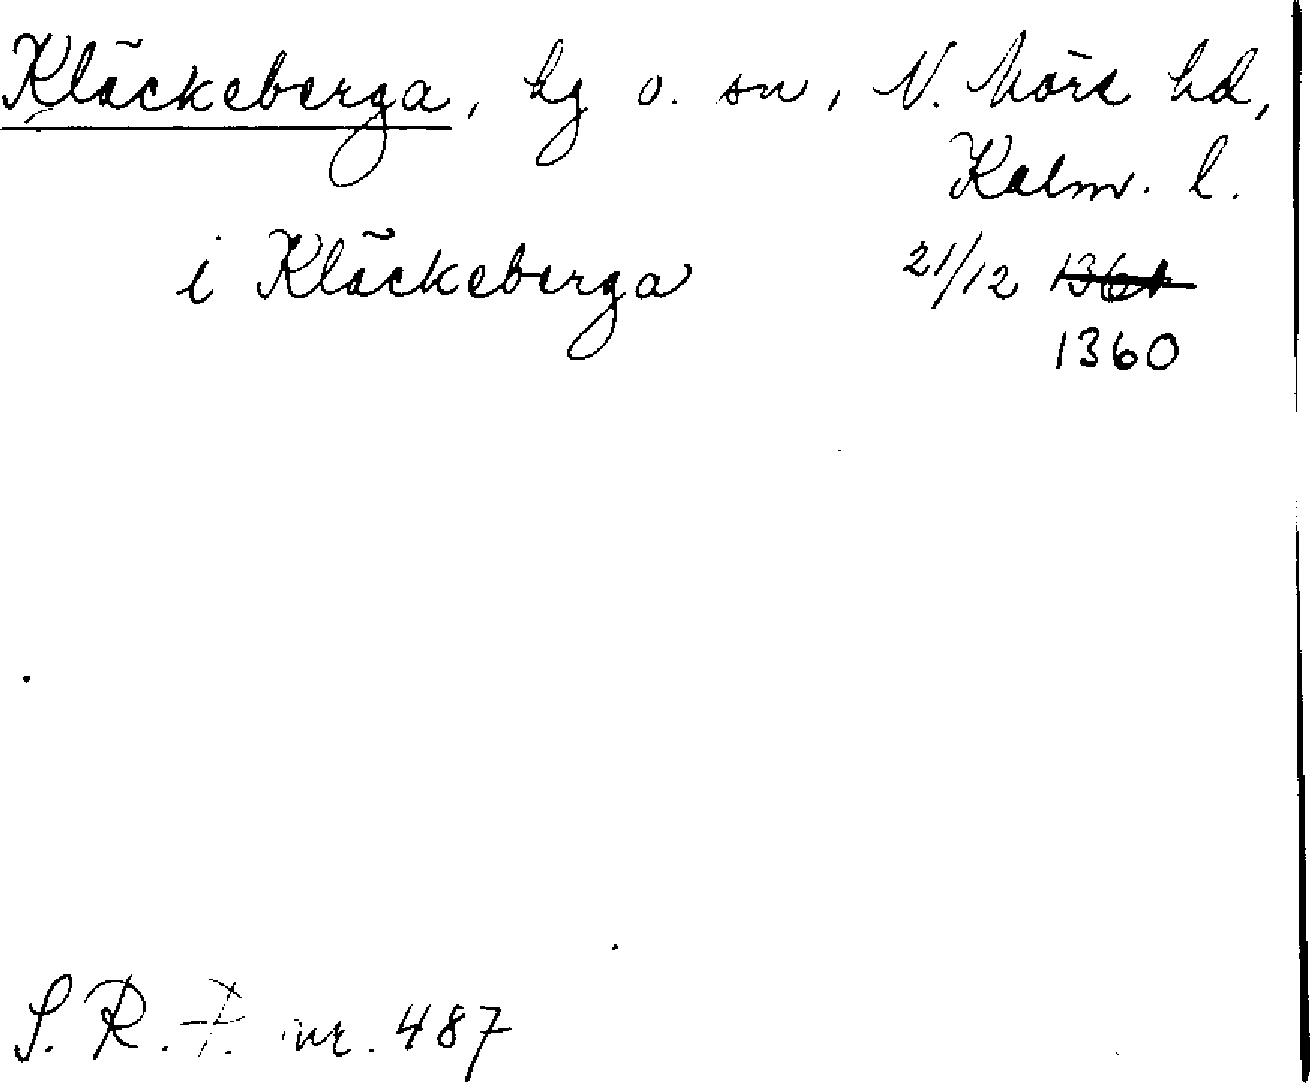 Kläckeberga, hg o. sn, N. Möre hd,
Kalm. l.
i Kläckeberga 21/12 1361
1360
S. R. P. nr. 487